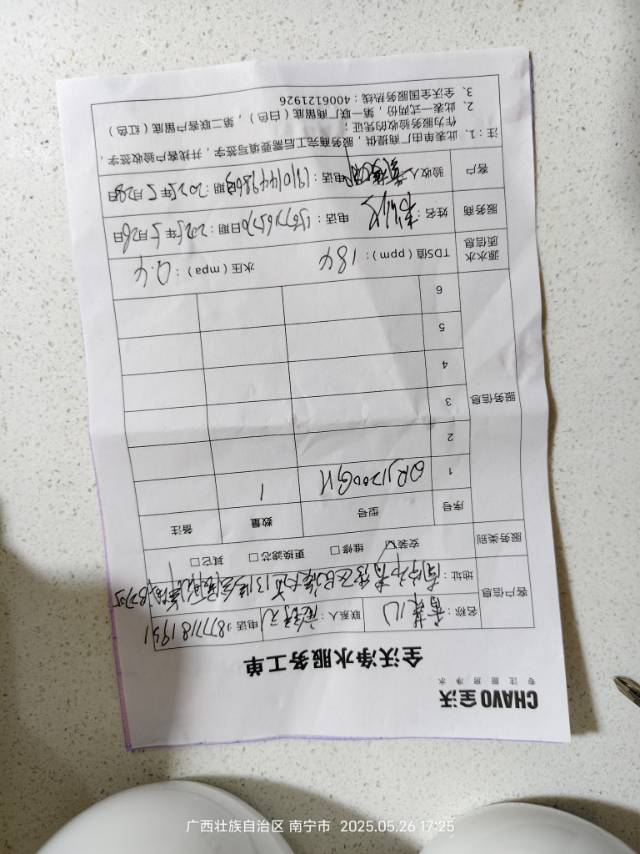 CHAVO 全沃
专 注 厨 房 净 水
全沃净水服务工单
客户信息 名称： 联系人： 电话：18777181951
地址：南宁市青秀区民族大道131号
服务类别 安装☑ 维修□ 更换滤芯□ 其它□
服务信息 序号 型号 数量 备注
1 QRJ1200GH 1
2
3
4
5
6
源水水质信息 TDS值（ppm）：184 水压（mpa）：0.4
服务商 姓名： 电话： 日期：2025年5月26日
客户 验收人： 电话： 日期：2025年5月26日
注：1、此表单由厂商提供，服务商完工后需要填写签字，并找客户验收签字，
作为服务验收的凭证；
2、此表一式两份，第一联厂商留底（白色），第二联客户留底（红色）
3、全沃全国服务热线：4006121926
广西壮族自治区 南宁市 2025.05.26 17:25